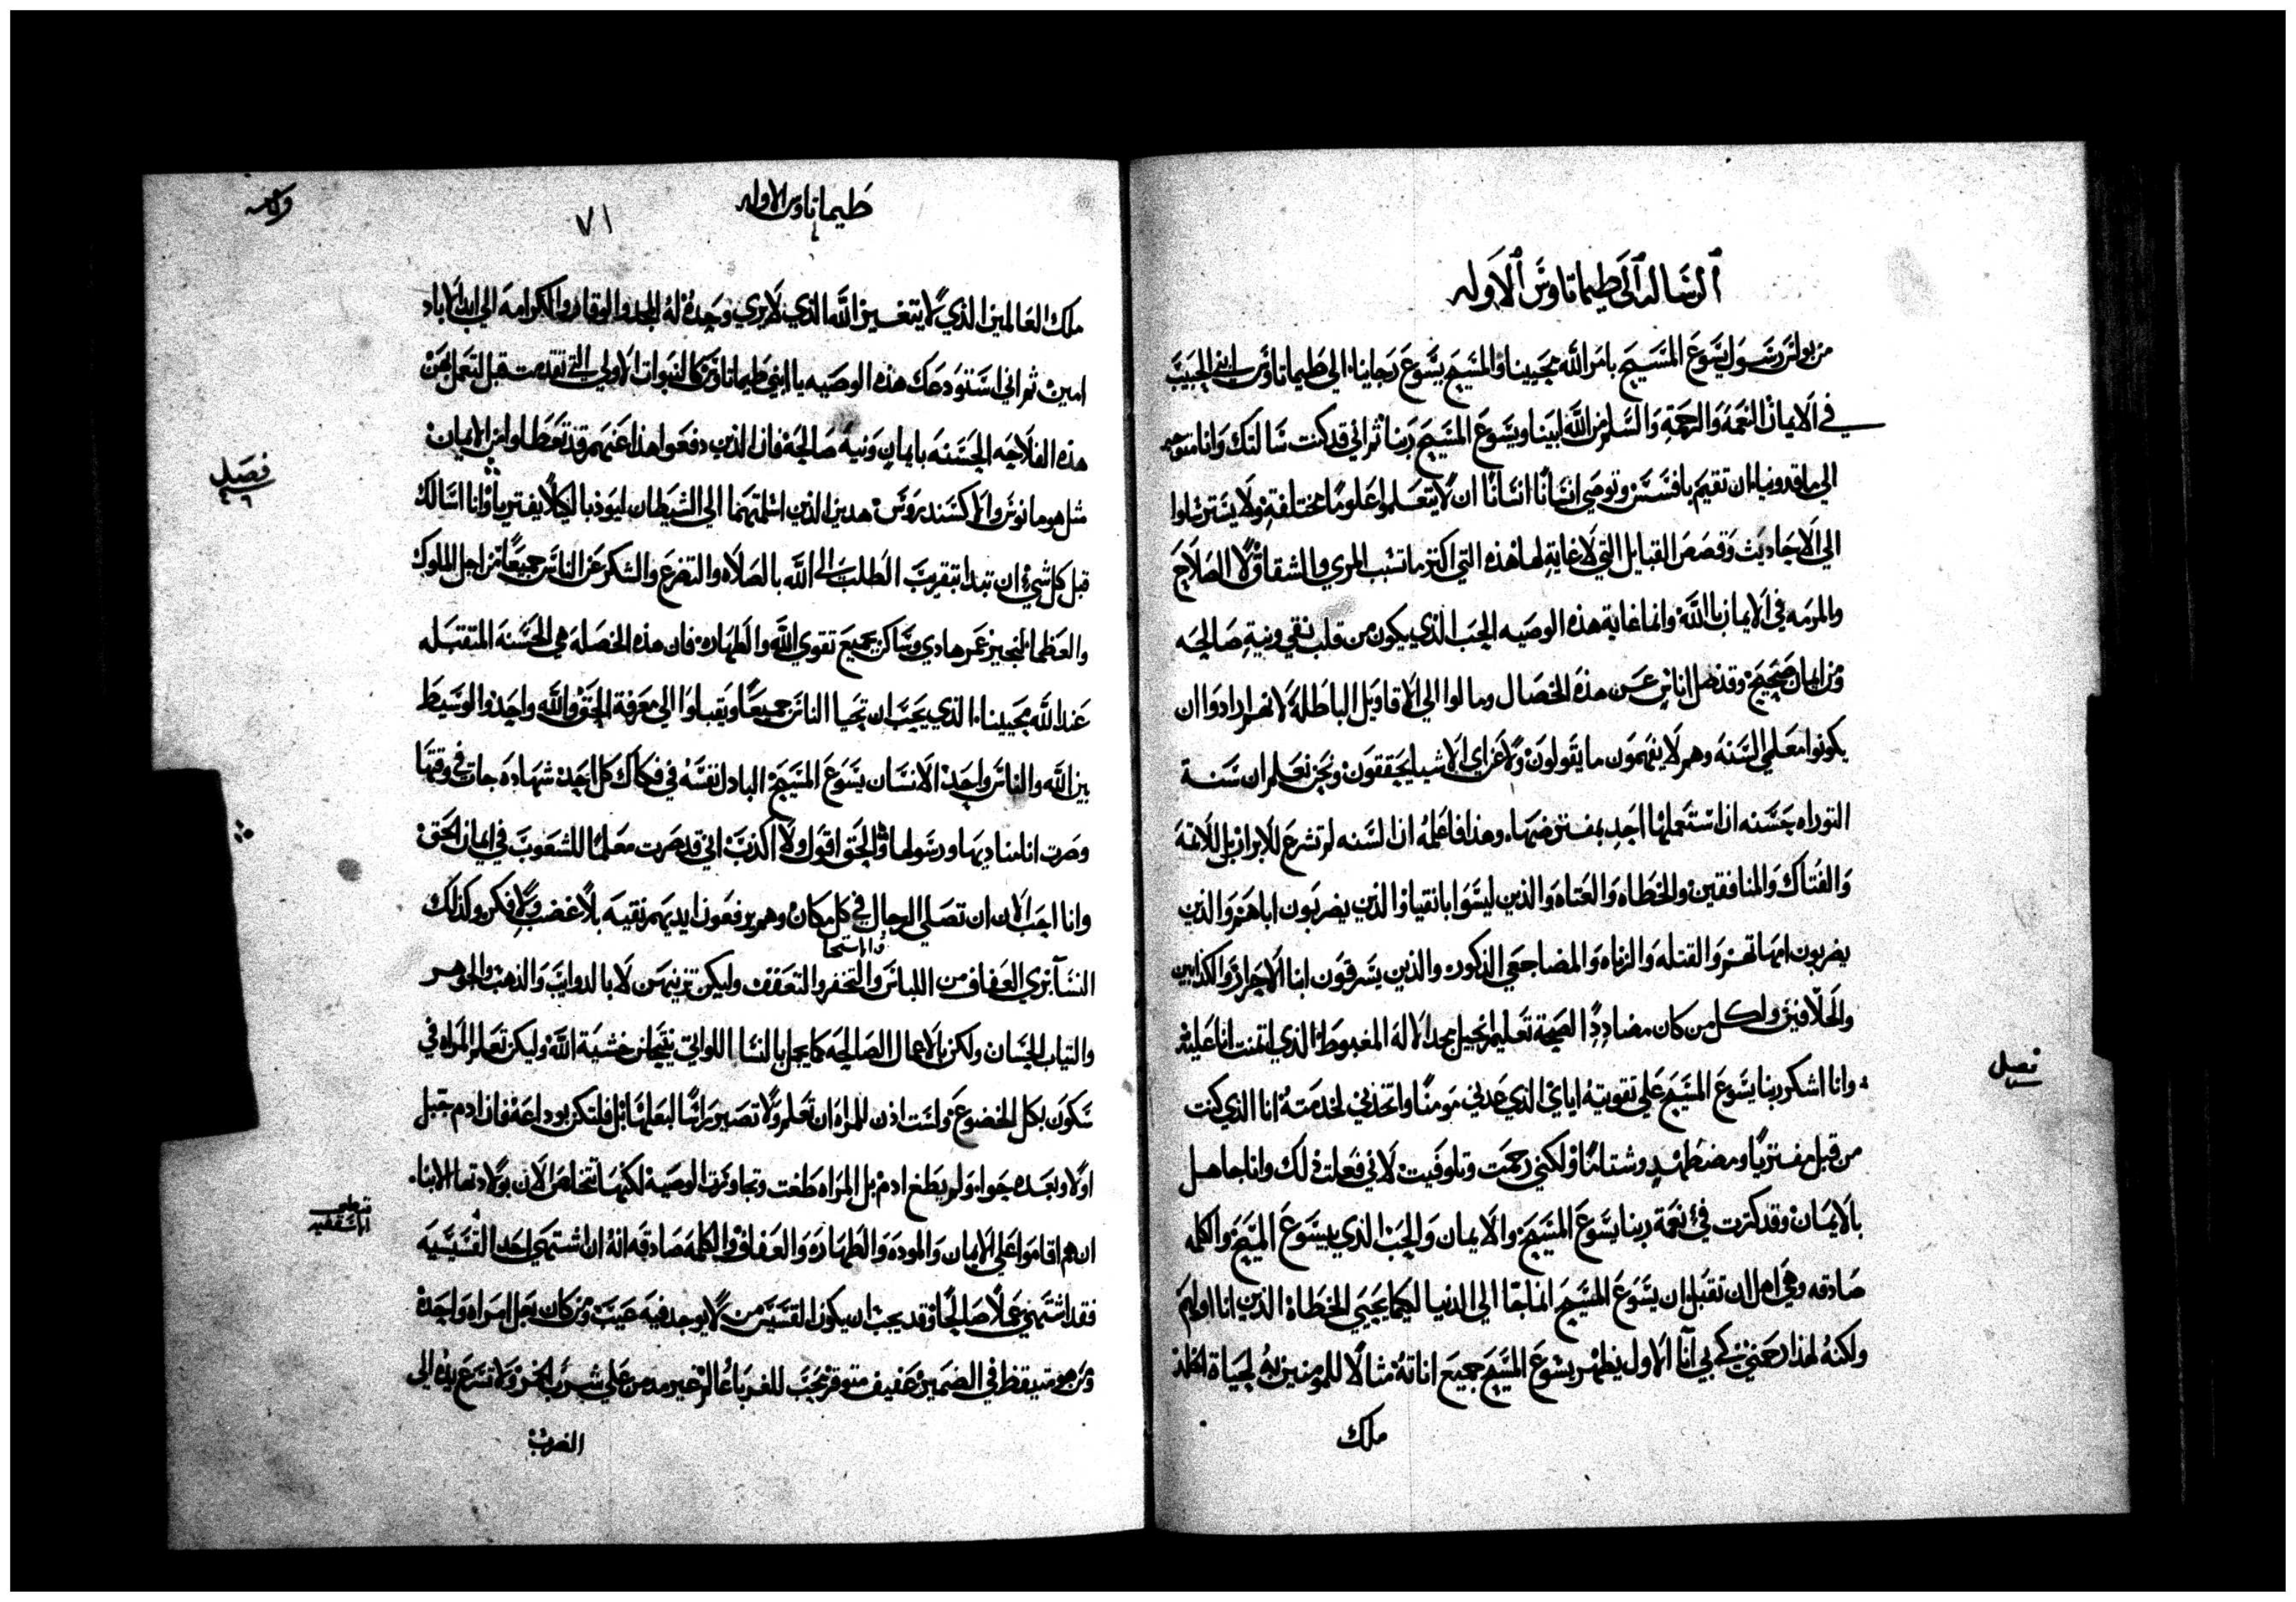 الرسالة الى طيماتاوس الاوله
من بولس رسول يسوع المسيح بامر الله محيينا والمسيح يسوع رجاينا الي طيماتاوس ابني الحبيب
في الايمان النعمه والرحمة والسلم من الله ابينا ويسوع المسيح ربنا ثم اني قد كنت سالتك وانا متوجه
الي ماقدونيا ان تقيم بافسس وتوصي انسانا انسانا ان لا يتعلموا علوما مختلفة ولا يسترسلوا
الي الاحاديث وقصص القبايل التي لا غاية لها هذه التي اكثر ما تسبب المري والشقاق لا الصلاح
والمرمه في الايمان بالله وانما غاية هذه الوصيه الحب الذي يكون من قلب نقي ونية صالحه
ومن ايمان صحيح وقد ضل اناس عن هذه الخصال ومالوا الي الاقاويل الباطلة لانهم ارادوا ان
يكونوا معلمي السنه وهم لا يفهمون ما يقولون ولا عن اي الاشيا يحققون ونحن نعلم ان سنة
التوراه حسنه ان استعملها احد بمفترضها وهذا فاعلمه ان السنه لم تشرع للابرار بل للاثمة
والفتاك والمنافقين والخطاه والعتاه والذين ليسوا بانقيا والذين يضربون اباهم والذين
يضربون امهاتهم والقتله والزناه والمضاجعي الذكور والذين يسرقون ابنا الاحرار والكذابين
والحلافين ولكل من كان مضاددا لصحة تعليم انجيل مجد الاله المغبوط الذي ايتمنت انا عليه
فصل
وانا اشكر ربنا يسوع المسيح علي تقويته اياي الذي عدني مومنا واتخذني لخدمته انا الذي كنت
من قبل مفتريا ومضطهد وشتاما ولكني رحمت وتلوفيت لاني فعلت ذلك وانا جاهل
بالايمان وقد كثرت في نعمة ربنا يسوع المسيح والايمان والحب الذي بيسوع المسيح والكلمه
صادقه وهي اهل ان تقبل ان يسوع المسيح انما جا الي الدنيا ليكما يحيي الخطاة الذين انا اولهم
ولكنه لهذا رحمني كي بي انا الاول يظهر يسوع المسيح جميع اناته مثالا للمومنين به لحياة الخلد
ملك
طيماتاوس الاوله
٧١
ملك العالمين الذي لا يتغير الله الذي لا يري وحده له المجد والوقار والكرامه الي ابد الاباد
امين ثم اني استودعك هذه الوصيه يا ابني طيماتاوس كالنبوات الاولي التي تقدمت قبل لتعمل بهن
هذه الفلاحه الحسنه بايمان ونية صالحة فان الذين دفعوا هذا عنهم قد تعطلوا من الايمان
فصل
مثل هومانوس والاكسندروس هذين الذين اسلمتهما الي الشيطان ليوذبا لكيلا يفتريا وانا اسالك
قبل كل شي ان تبدا بتقريب الطلب الي الله بالصلاه والتضرع والشكر عن الناس جميعا من اجل الملوك
والعظما لنحيز عمر هادي وساكن بجميع تقوي الله والطهاره فان هذه الخصله هي الحسنة المتقبله
عند الله محيينا الذي يحب ان تحيا الناس جميعا ويقبلوا الي معرفة الحق والله واحد والوسيط
بين الله والناس واحد الانسان يسوع المسيح البادل نفسه في فكاك كل احد شهاده جات في وقتها
وصرت انا مناديها ورسولها والحق اقول ولا اكذب اني قد صرت معلما للشعوب في ايمان الحق
وانا احب الان ان تصلي الرجال في كل مكان وهم يرفعون ايديهم نقيه بلا غضب ولا فكر وكذلك
النسآ بزي العفاف من اللباس والتخفر والتعفف وليكن تزينهن لا بالدوايب والذهب والجوهر
والاستحيا
والثياب الحسان ولكن بالاعمال الصالحه كما يجمل بالنسا اللواتي ينتحلن خشية الله وليكن تعلم المراه في
سكون بكل الخضوع ولست اذن للمراه ان تعلم ولا تصير راسا لبعلها بل فلتكن بوداعة فان ادم جبل
اولا وبعده حوا ولم يطغ ادم بل المراه طغت وتجاوزت الوصية لكنها تتخلص الان بولادتها الابنا
ان هم اقاموا علي الايمان والموده والطهاره والعفاف والكلمه صادقه انه ان اشتهي احد القسيسيه
فقد اشتهي عملا صالحا وقد يجب ان يكون القسيس من لا يوجد فيه عيب ومن كان بعل امراه واحدة
ومن هو متيقظ في الضمير عفيف متوقر محب للغربا عالم غير مدمن علي شرب الخمر ولا تسرع يده الي
الضرب